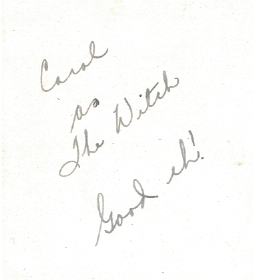 Carol
as
The Witch
Good eh!